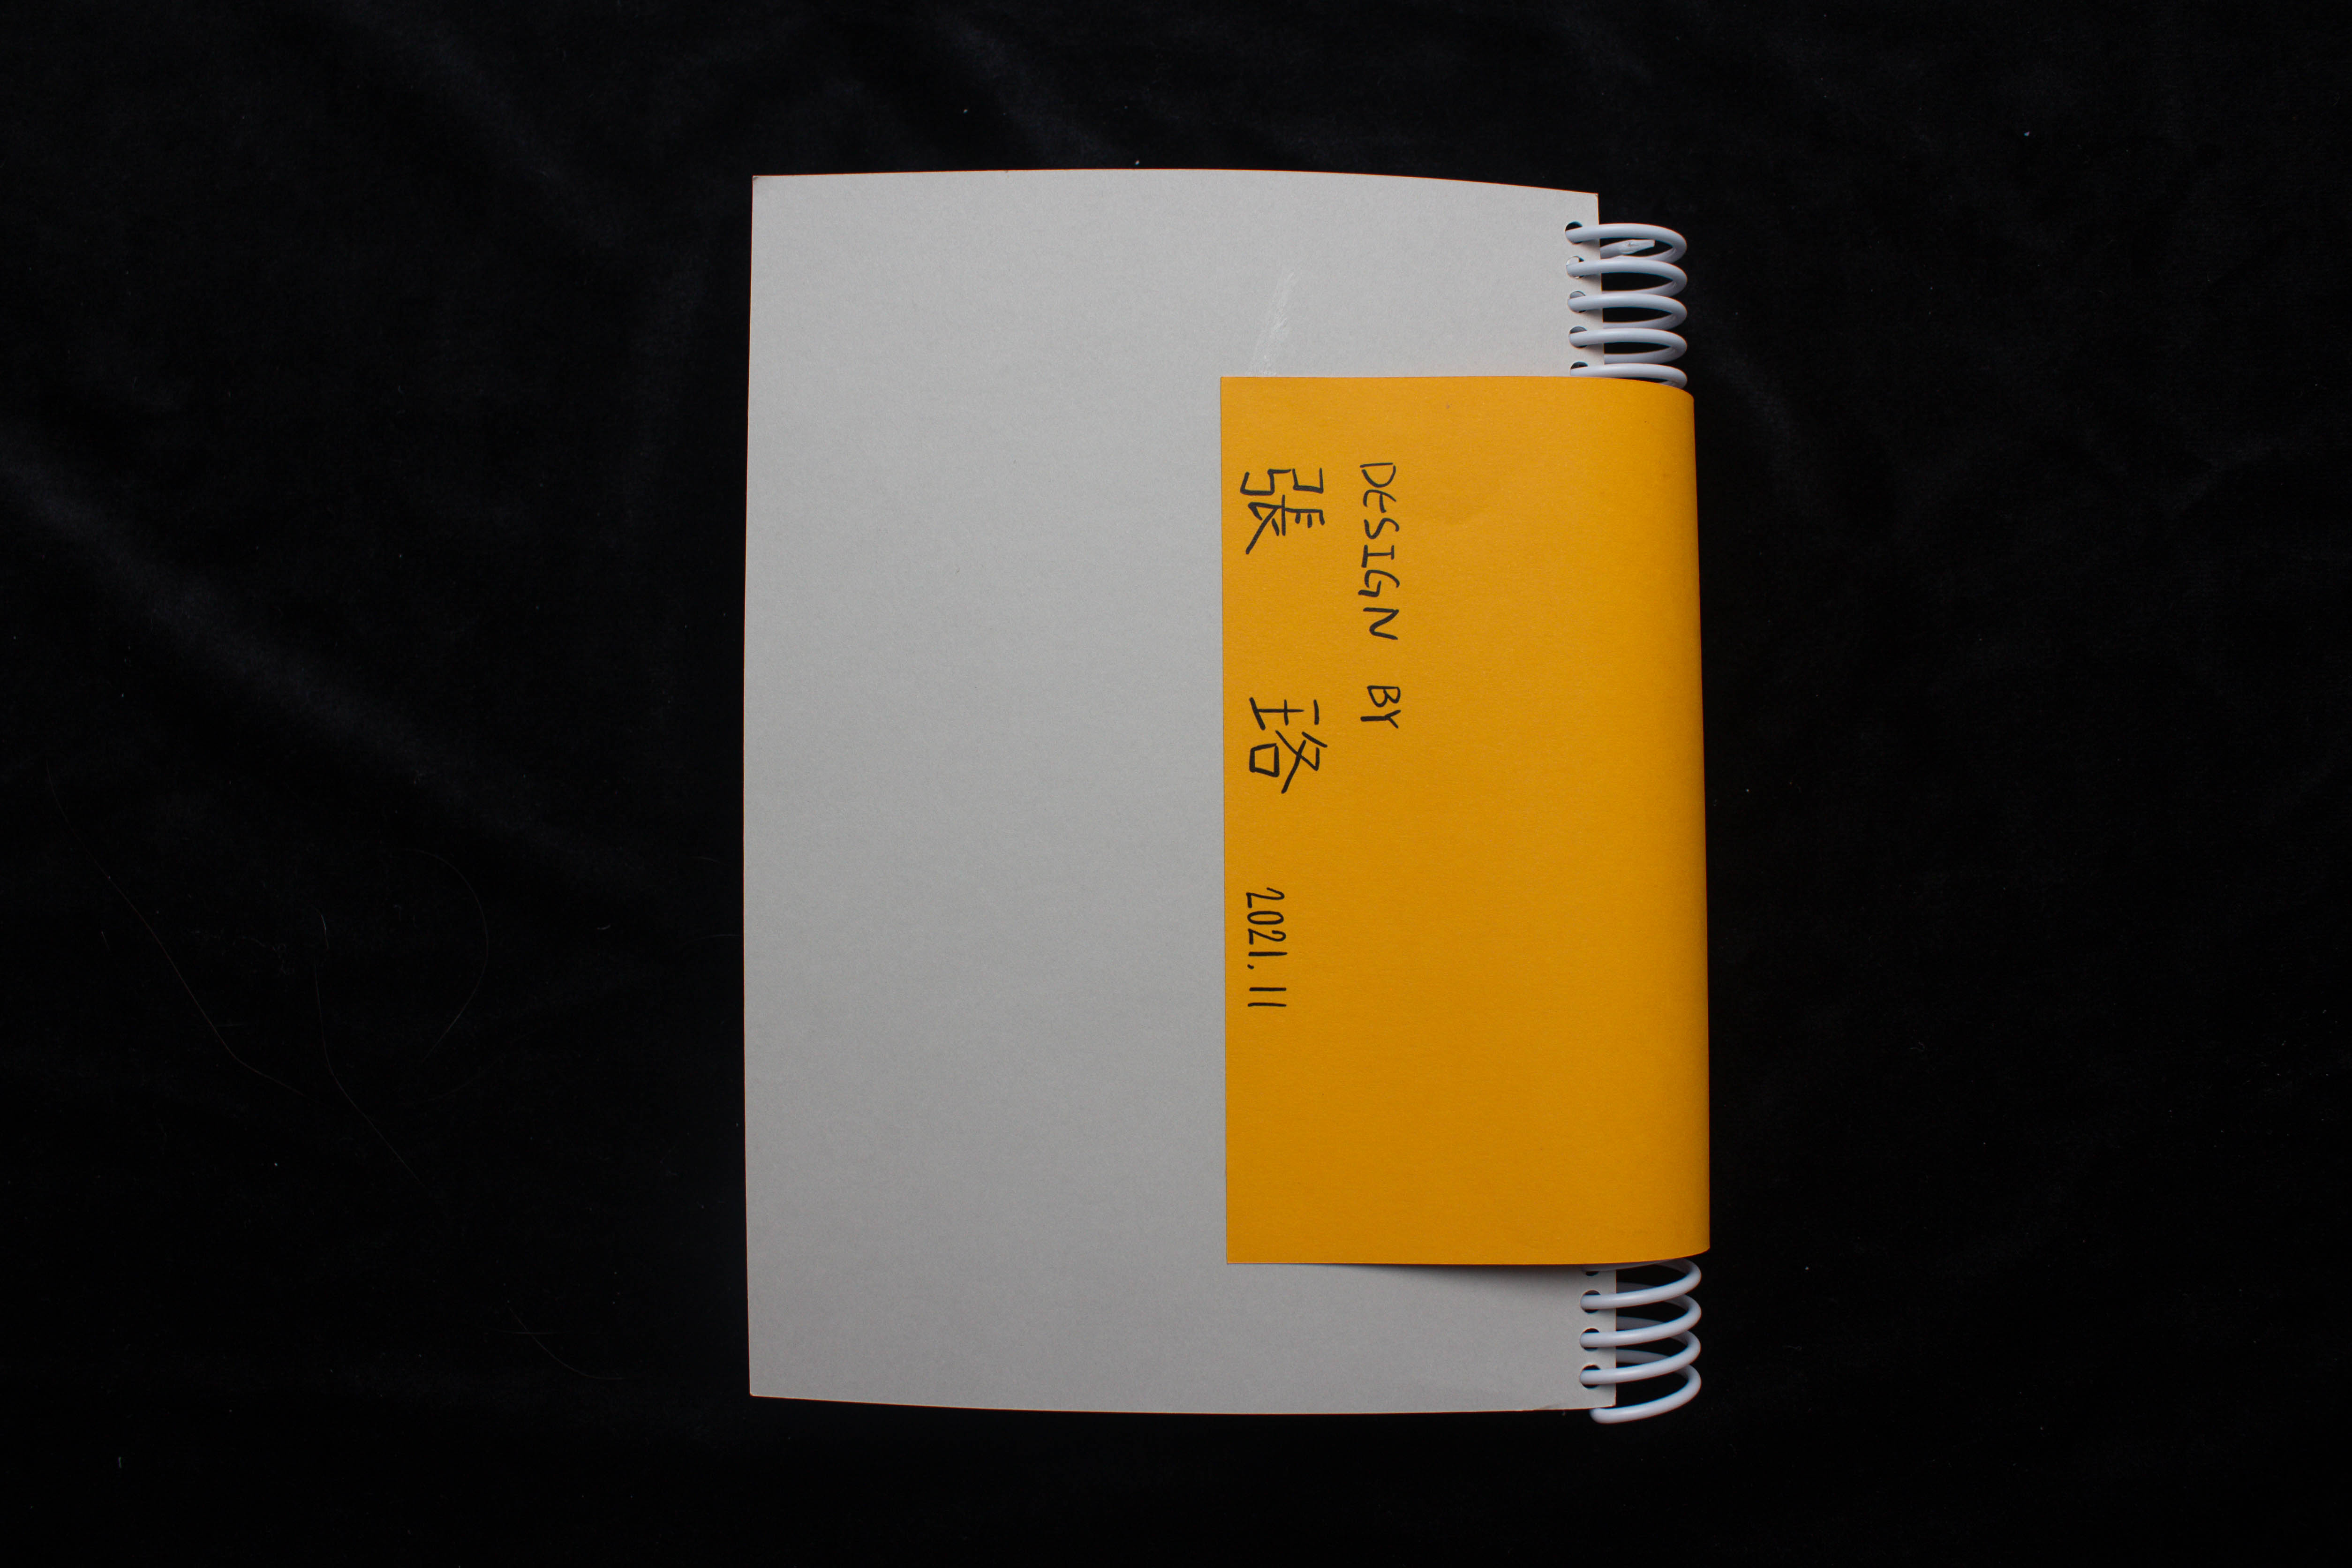 DESIGN BY
張 珞 2021.11